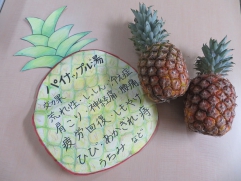 パイナップル湯
効果
荒れ性・しっしん・冷え症
肩こり・神経痛・腰痛
疲労回復・しもやけ
ひび・あかぎれ・痔
うちみ など